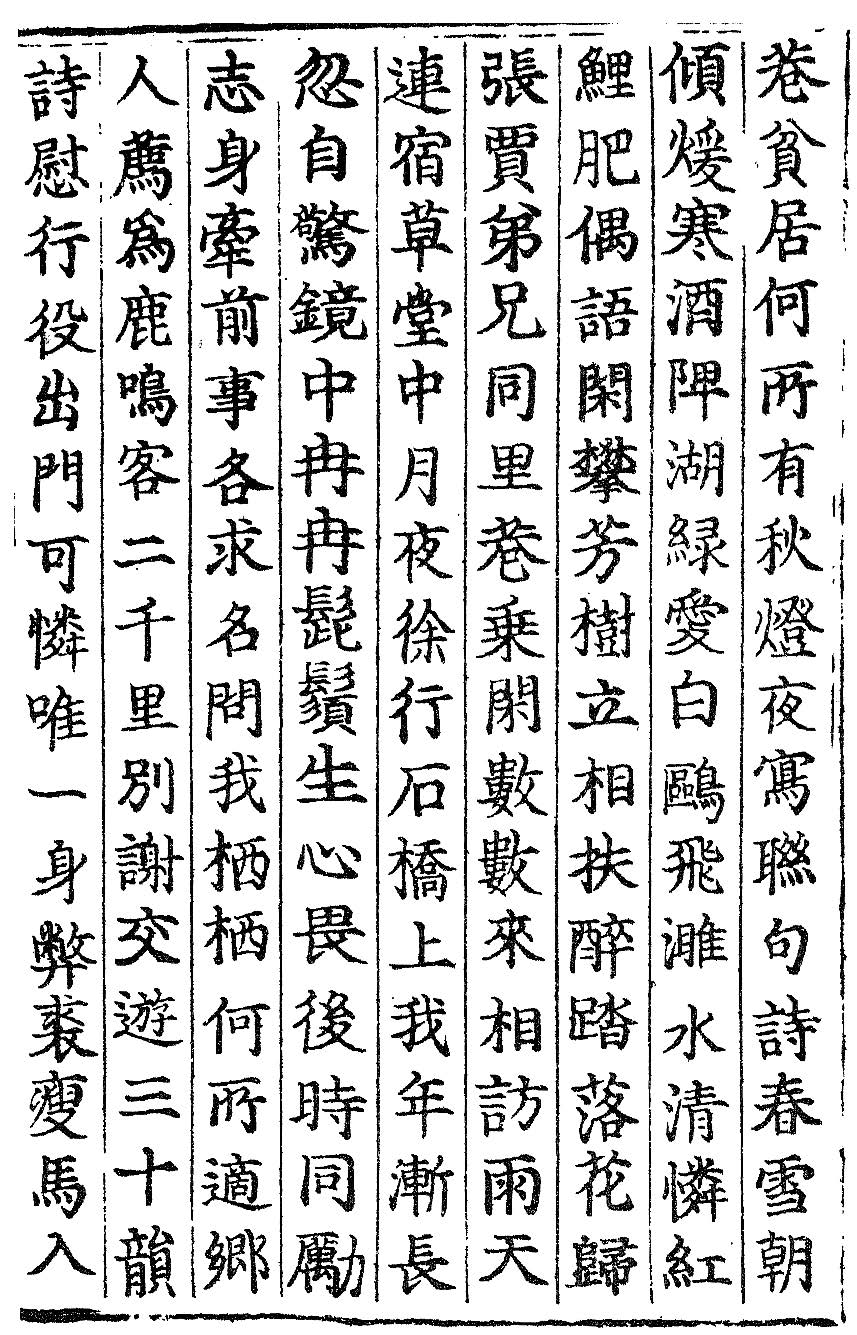 巷貧居何所有秋燈夜寫聯句詩春雪朝
傾煖寒酒陴湖緑愛白鷗飛濉水清憐紅
鯉肥偶語閑攀芳樹立相扶醉踏落花歸
張賈弟兄同里巷乗閑數數來相訪雨天
連宿草堂中月夜徐行石橋上我年漸長
忽自驚鏡中冉冉髭鬚生心畏後時同勵
志身牽前事各求名問我栖栖何所適鄉
人薦爲鹿鳴客二千里别謝交遊三十韻
詩慰行役出門可憐唯一身弊裘瘦馬入